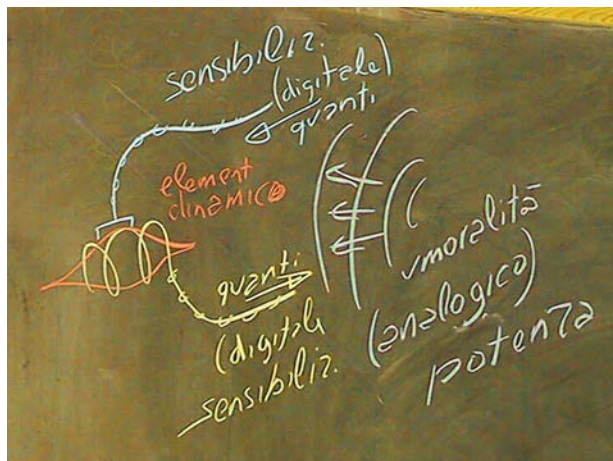 sensibiliz.
(digitale)
quanti
element
dinamico
quanti
(digitali
sensibiliz.
umoralità
(analogico)
potenza